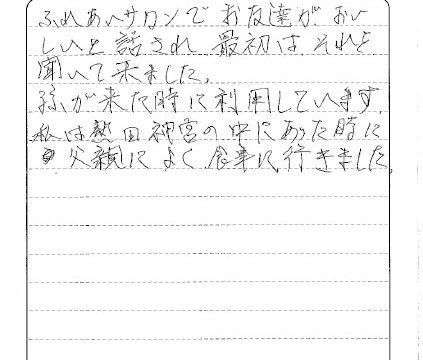 ふれあいサロンで お友達がおい
しいと話され 最初は それを
聞いて来ました。
孫が来た時に利用しています。
私は熱田神宮の中にあった時に
父親に よく 食事に 行きました。